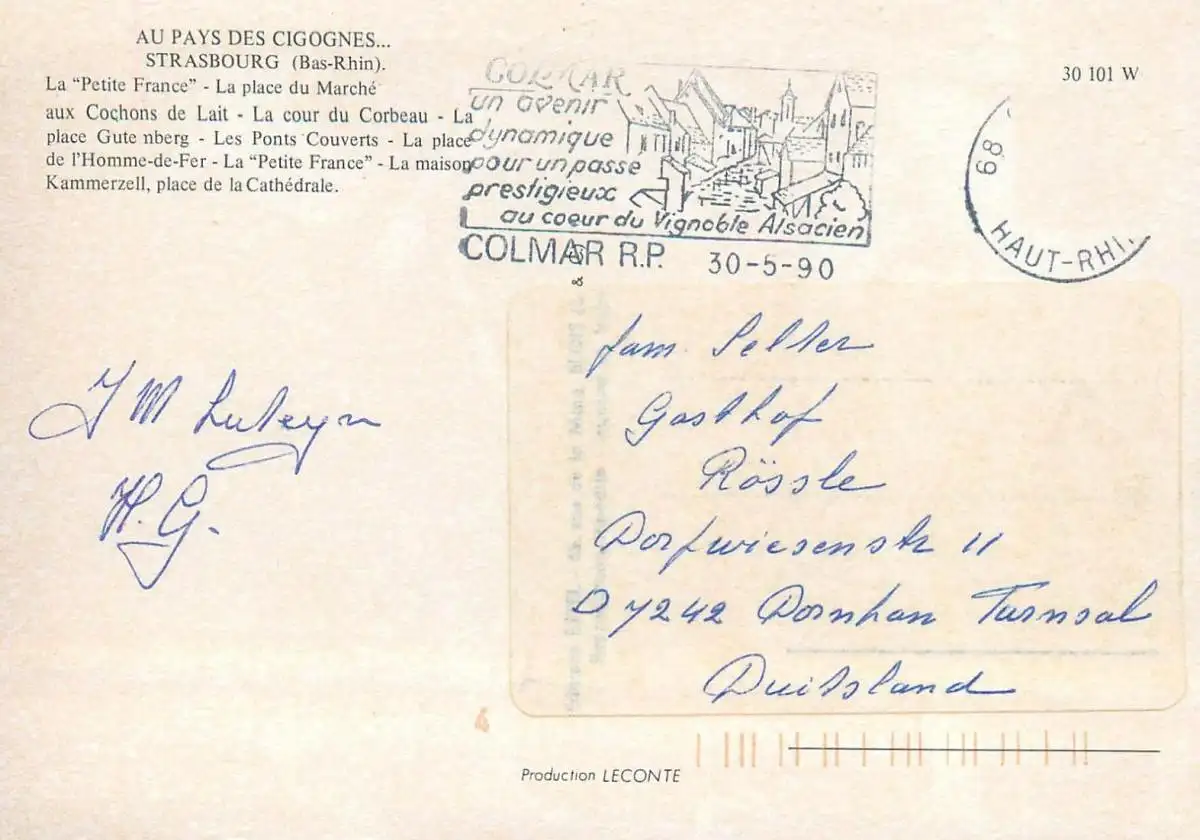 AU PAYS DES CIGOGNES...
STRASBOURG (Bas-Rhin).
La "Petite France" - La place du Marché
aux Cochons de Lait - La cour du Corbeau - La
place Gute nberg - Les Ponts Couverts - La place
de l'Homme-de-Fer - La "Petite France" - La maison
Kammerzell, place de la Cathédrale.
COLMAR
un avenir
dynamique
pour un passe
prestigieux
au coeur du Vignoble Alsacien
COLMAR R.P. 30-5-90
30 101 W
68
HAUT-RHI
J M Luteyn
H. G.
fam. Selter
Gasthof
Rössle
Dorfwiesenstr 11
D 7242 Dornhan Turnsal
Duitsland
4
Production LECONTE